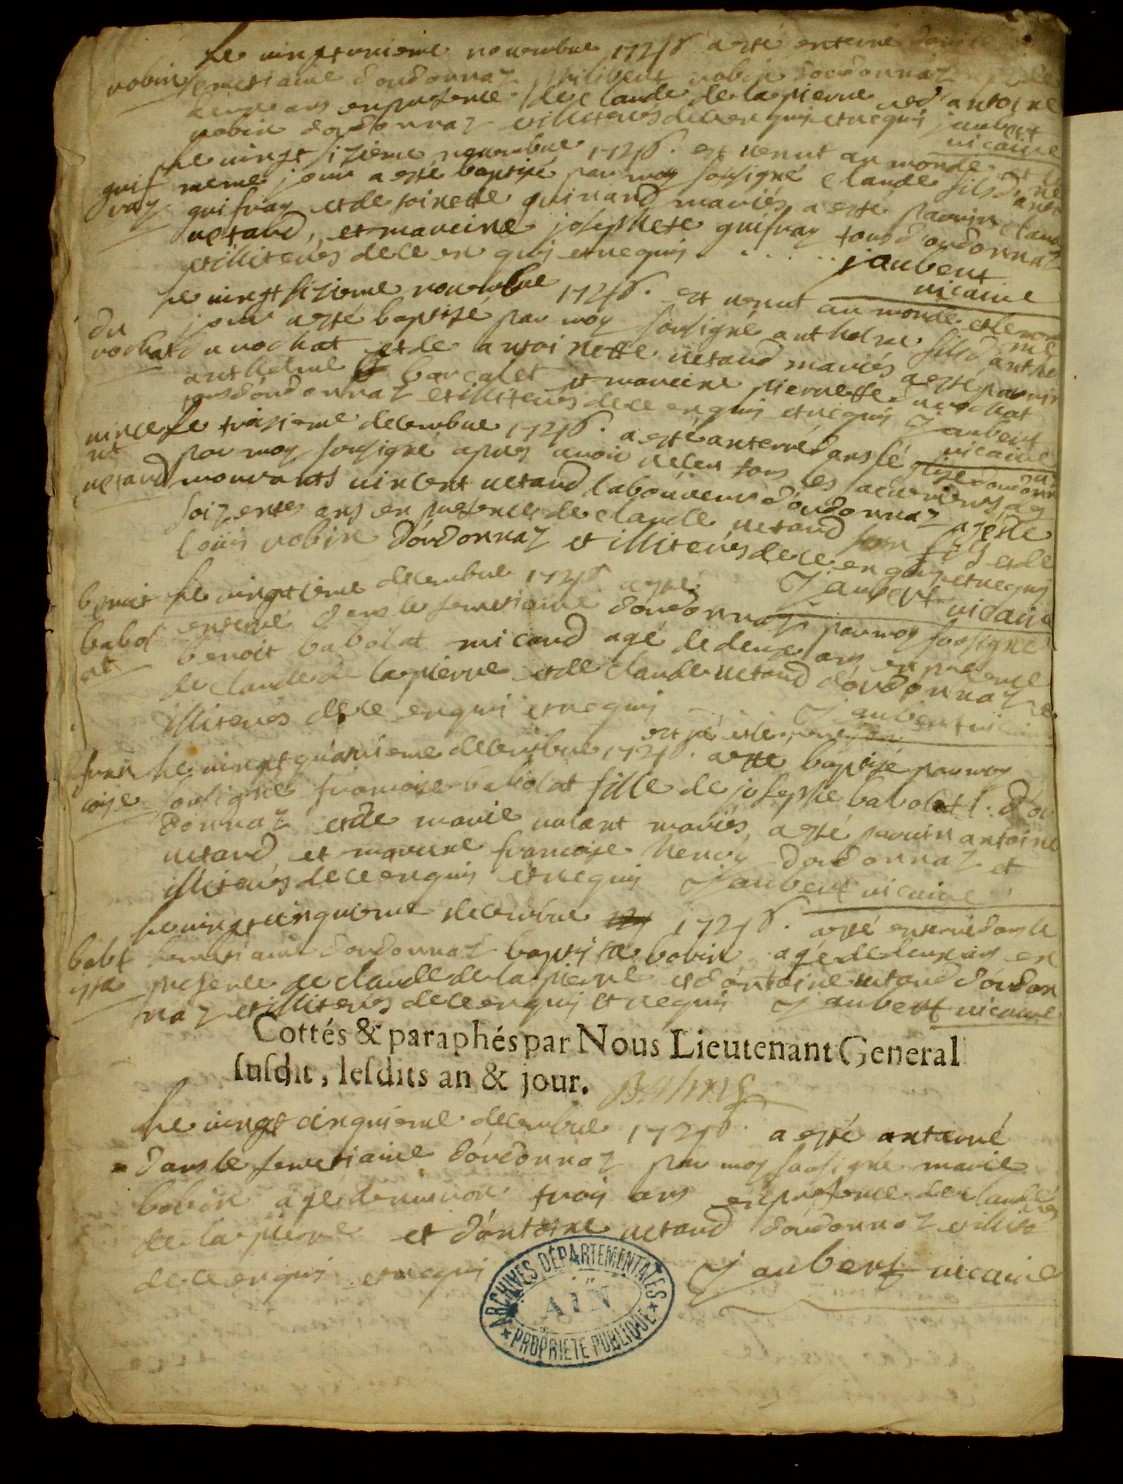 Le vingt unieme novembre 1726 a esté enterré dans le
robin semetiaire dordonnaz philibert robin dordonnaz
ans en presence de claude de lapierre et d'antoine
robin dordonnaz illiterés de ce enquis et requis jaubert
vicaire
Le vingt sizieme novembre 1726. est venut au monde et le
guif meme jour a esté baptisé par moy sousigné claude fils d'
ray guifray et de toinette guinard mariés a esté parrin claude
netard, et mareine josephete guifray tous d'ordonnaz
et illiterés de ce en quis et requis . . . . . jaubert
vicaire
Le vingt sizieme novembre 1726. est venut au monde et le meme
du jour a esté baptisé par moy sousigné anthelme fils d'anthe
rochat du rochat et de antoinette netard mariés a esté parrin
anthelme barcalet et mareine pierrette du rochat
tous dordonnaz et illiterés de ce enquis et requis Jaubert
vicaire
vince Le troisieme decembre 1726. a esté anterré dans le
nt par moy sousigné apres avoir receu tous les sacrements
netard mourants vincent netard laboureur d'ordonnaz agé de
soizentes ans en presence de claude netard son fils et de
louis robin d'ordonnaz et illiterés de ce en quis et requis
Jaubert vicaire
benoit Le vingtieme decembre 1726 a esté
babol enterré dans le semetiaire dordonnaz par moy sousigné
at benoit babolat micaud agé de deux ans en presence
de claude de lapierre et de claude netard d'ordonnaz
illiterés de ce enquis et requis Jaubert vicaire
est né et le
fran Le vingt quatrieme decembre 1726. a esté baptisé par moy
coise sousigné francoise babolat fille de josephe babolat d'or
donnaz et de marie mariés, a esté parrin antoine
netard et mareine francoise dordonnaz et
illiterés de ce enquis et requis Jaubert vicaire
Le vingt cinquieme decembre 1726. a esté enterré dans le
bapt semetiaire dordonnaz baptiste bobin agé de deux ans en
iste presence de claude de lapierre et d'antoine netard d'ordon
naz et illiterés de ce enquis et requis Jaubert vicaire
Cottés & paraphés par Nous Lieutenant General
ſuſdit, leſdits an & jour.
Le vingt cinquieme decembre 1726. a esté anterré
dans le semetiaire d'ordonnaz par moy sousigné marie
bobin agé denviron trois ans en presence de claude
de lapierre et d'antoine netard d'ordonnaz et illite
de ce enquis et requis Jaubert vicaire
ARCHIVES DÉPARTEMENTALES
AIN
PROPRIÉTÉ PUBLIQUE